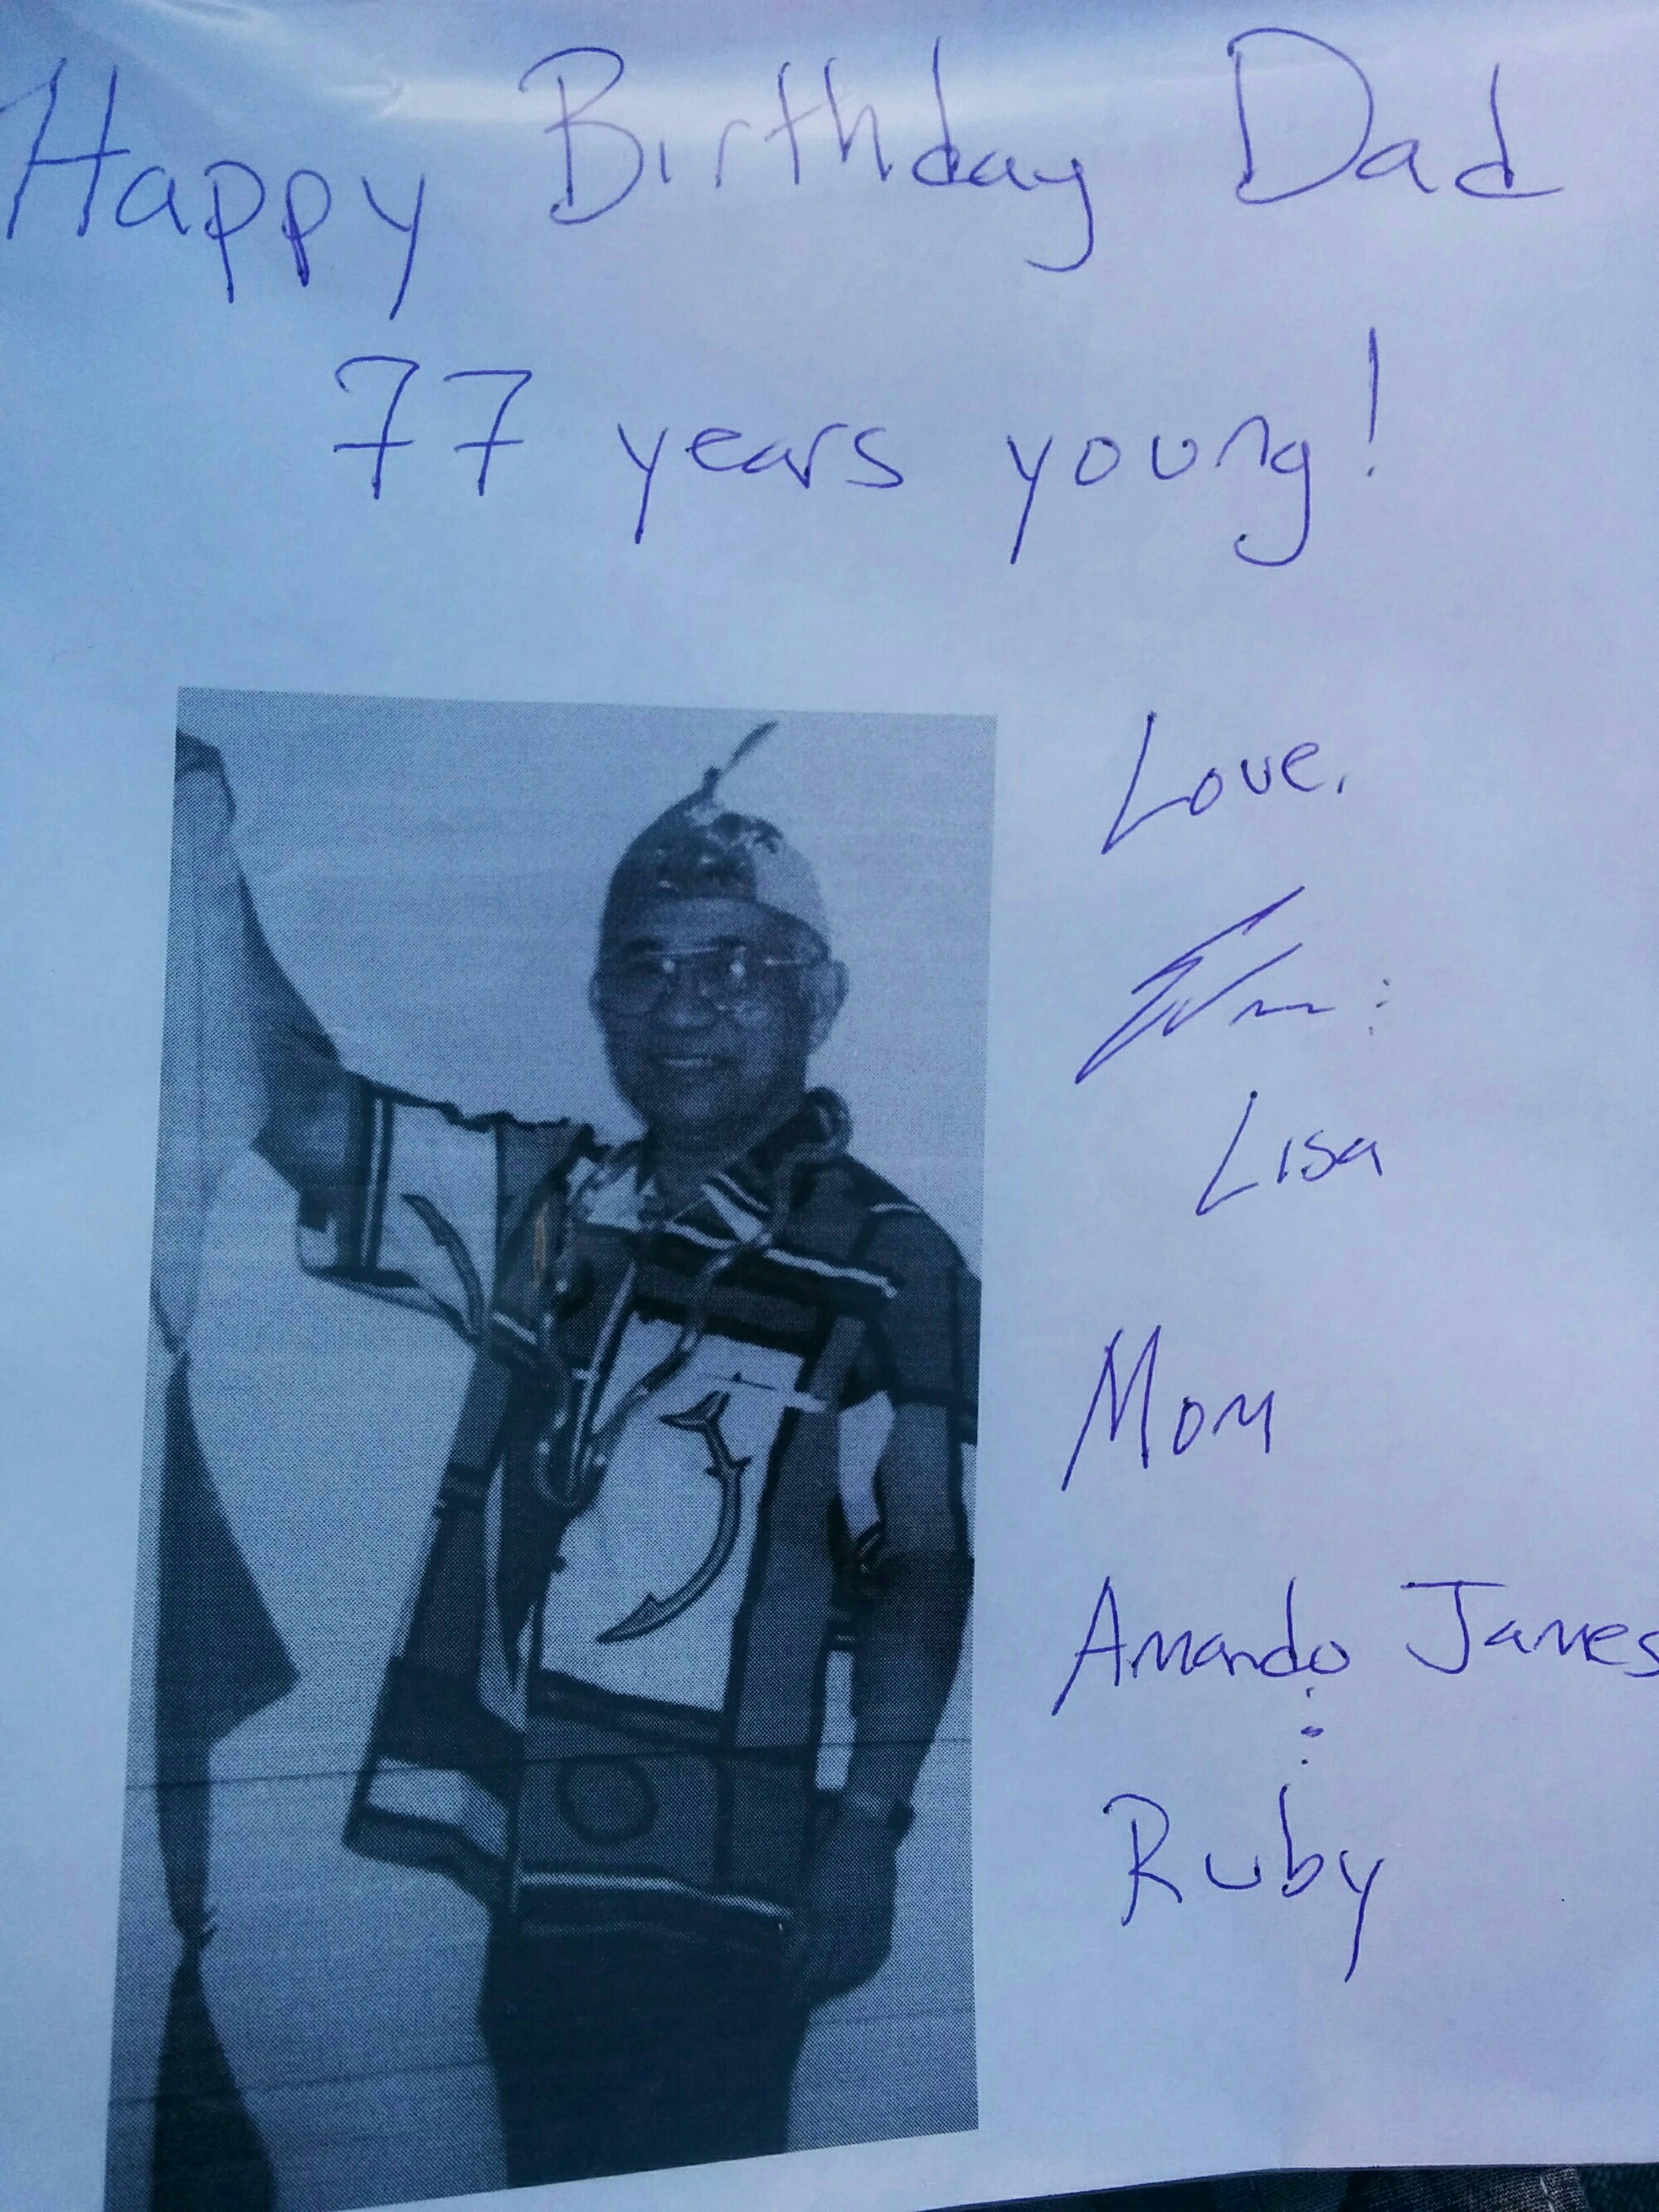 Happy Birthday Dad
77 years young!
Love,
Lisa
Mom
Amando James
Ruby